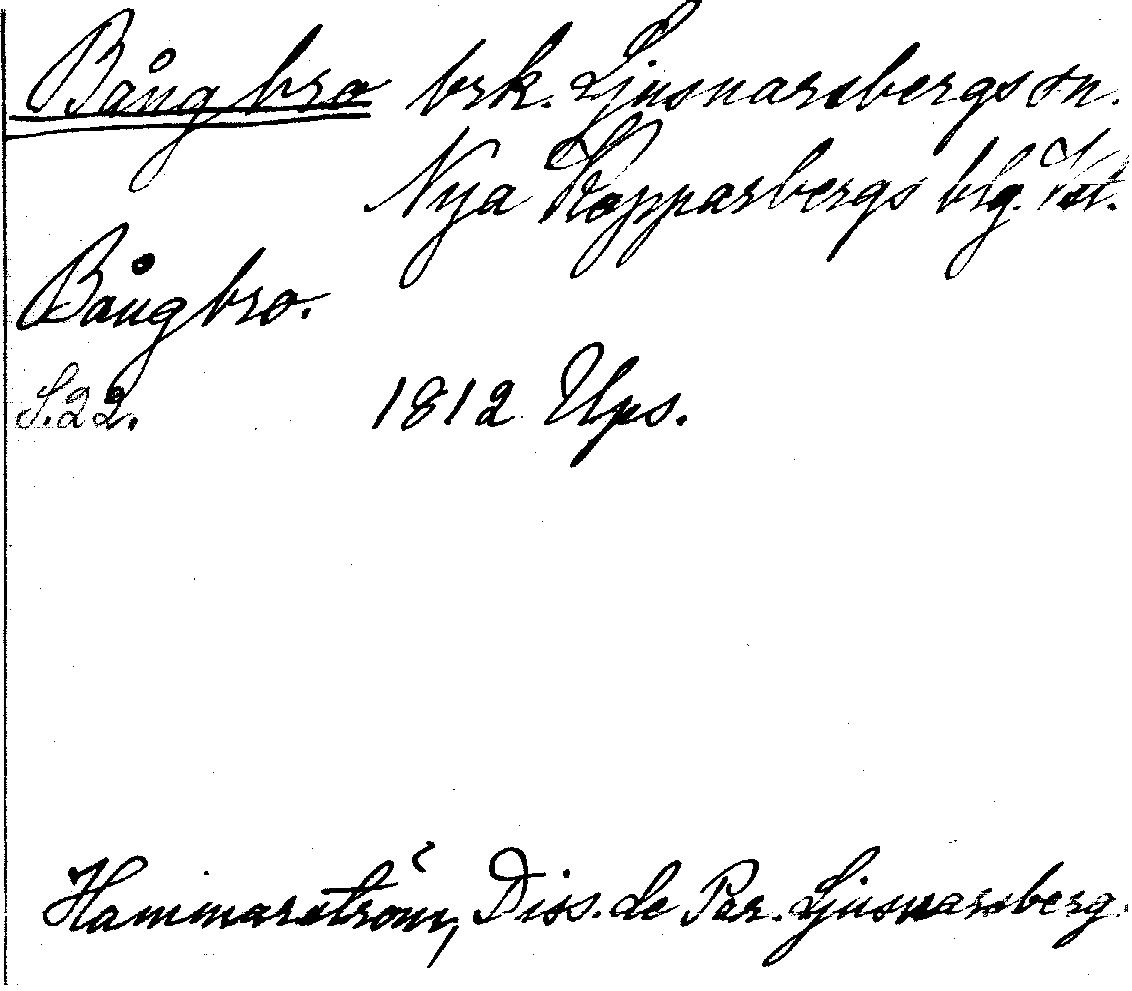 Bångbro brk. Ljusnarsbergs sn.
Nya Kopparbergs blg. Vstl.
Bångbro.
S.22. 1812 Ups.
Hammarström, Diss. de Par. Ljusnarsberg.